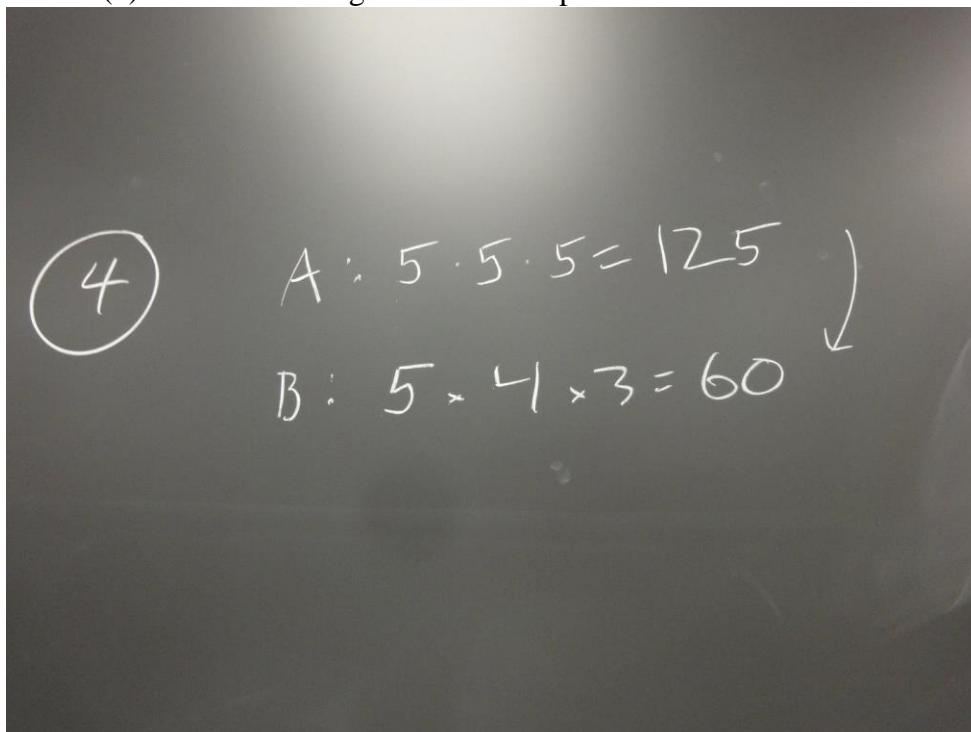 4
A: 5 · 5 · 5 = 125
B: 5 × 4 × 3 = 60